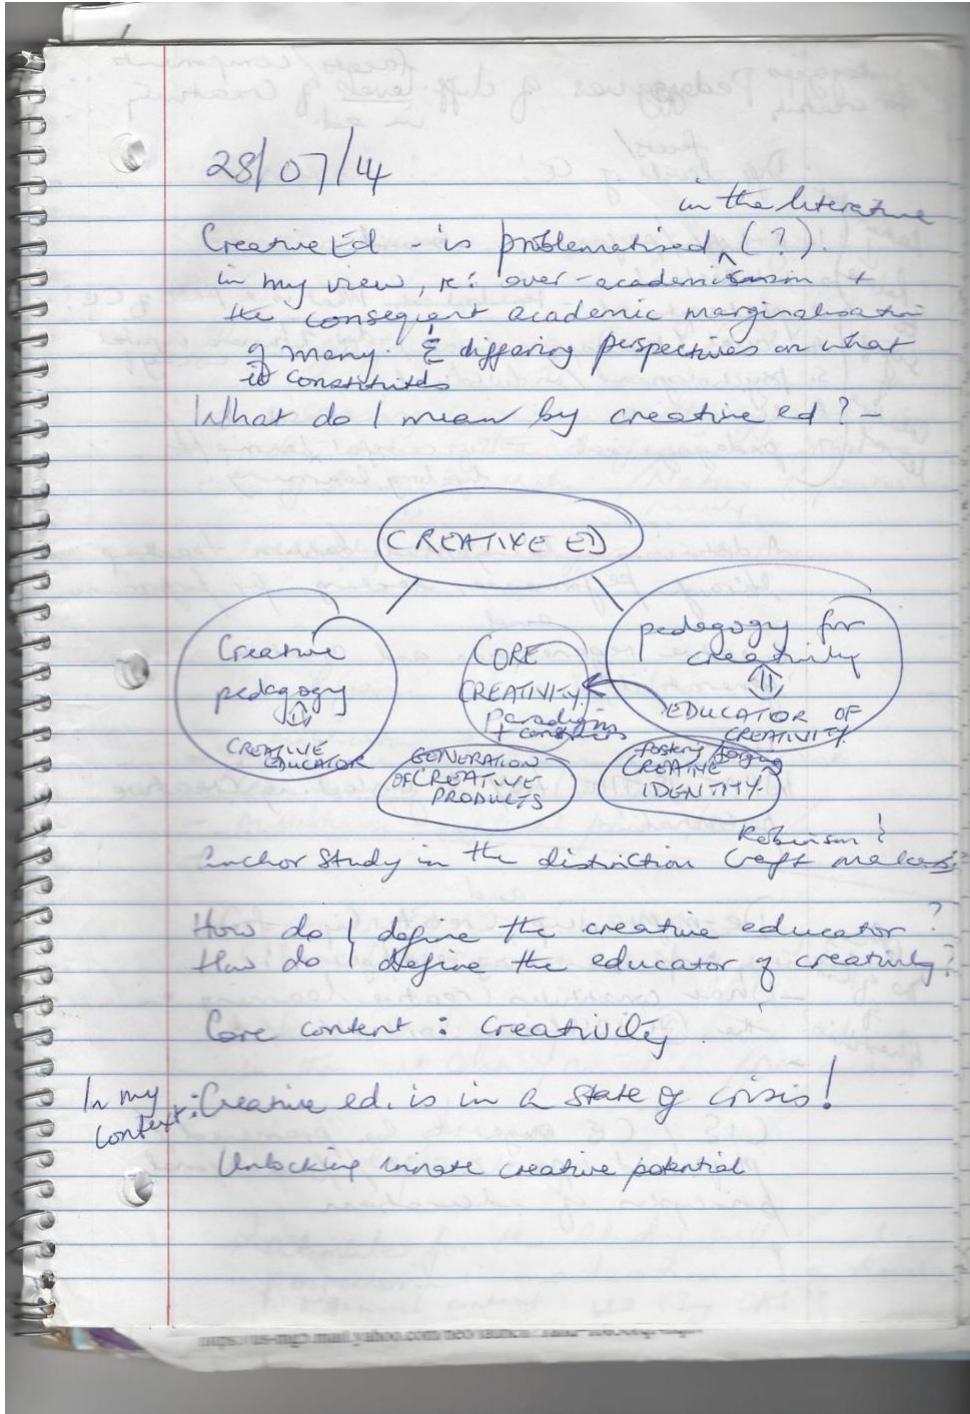 28/07/14
in the literature
Creative Ed - is problematised ^ (?).
in my view, re: over-academicism +
the consequent academic marginalisation
of many. & differing perspectives on what
it constitutes
What do I mean by creative ed? -
CREATIVE ED
Creative
pedagogy
CREATIVE
EDUCATOR
CORE
CREATIVITY
paradigm
+ constructs
pedagogy for
creativity
EDUCATOR OF
CREATIVITY
GENERATION
OF CREATIVE
PRODUCTS
CREATIVE
IDENTITY.
Robinson &
Anchor study in the distinction Craft makes
How do I define the creative educator?
How do I define the educator of creativity?
Core content: Creativity.
In my context: Creative ed. is in a state of crisis!
Unlocking innate creative potential